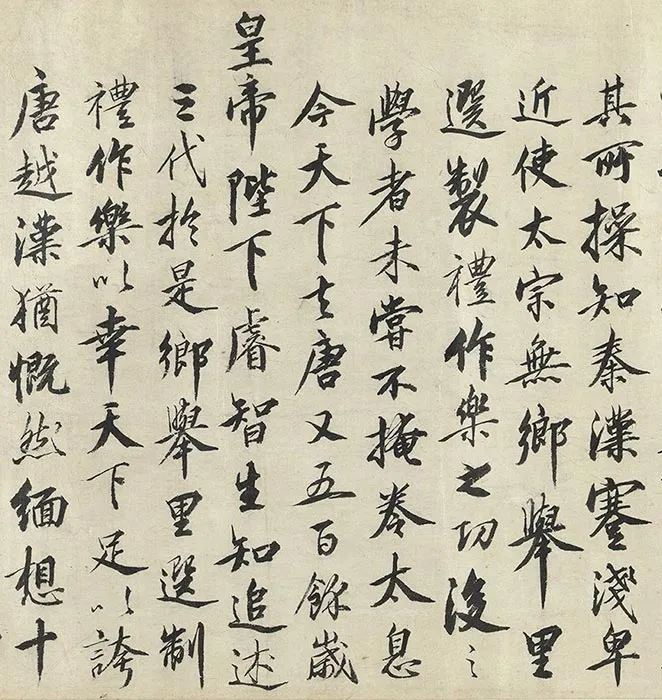 其所操知秦漢蹇淺卑
近使太宗無鄉舉里
選製禮作樂之功後之
學者未嘗不掩卷太息
今天下去唐又五百餘歲
皇帝陛下睿智生知追述
三代於是鄉舉里選制
禮作樂以幸天下足以誇
唐越漢猶慨然緬想十